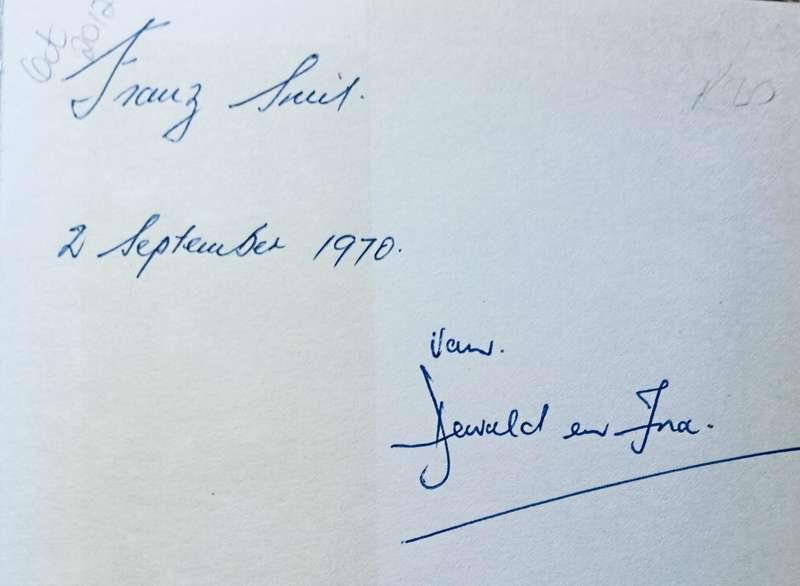 Oct
2012
Franz Smit.
2 September 1970.
van.
Dewald en Ina.